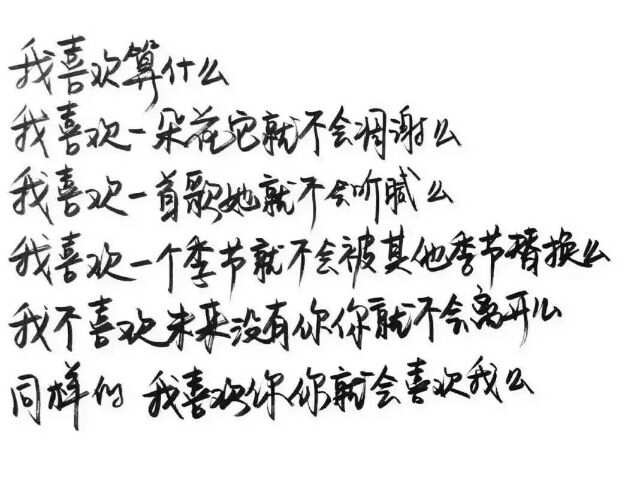 我喜欢算什么
我喜欢一朵花它就不会凋谢么
我喜欢一首歌她就不会听腻么
我喜欢一个季节就不会被其他季节替换么
我不喜欢未来没有你你就不会离开么
同样的 我喜欢你你就会喜欢我么